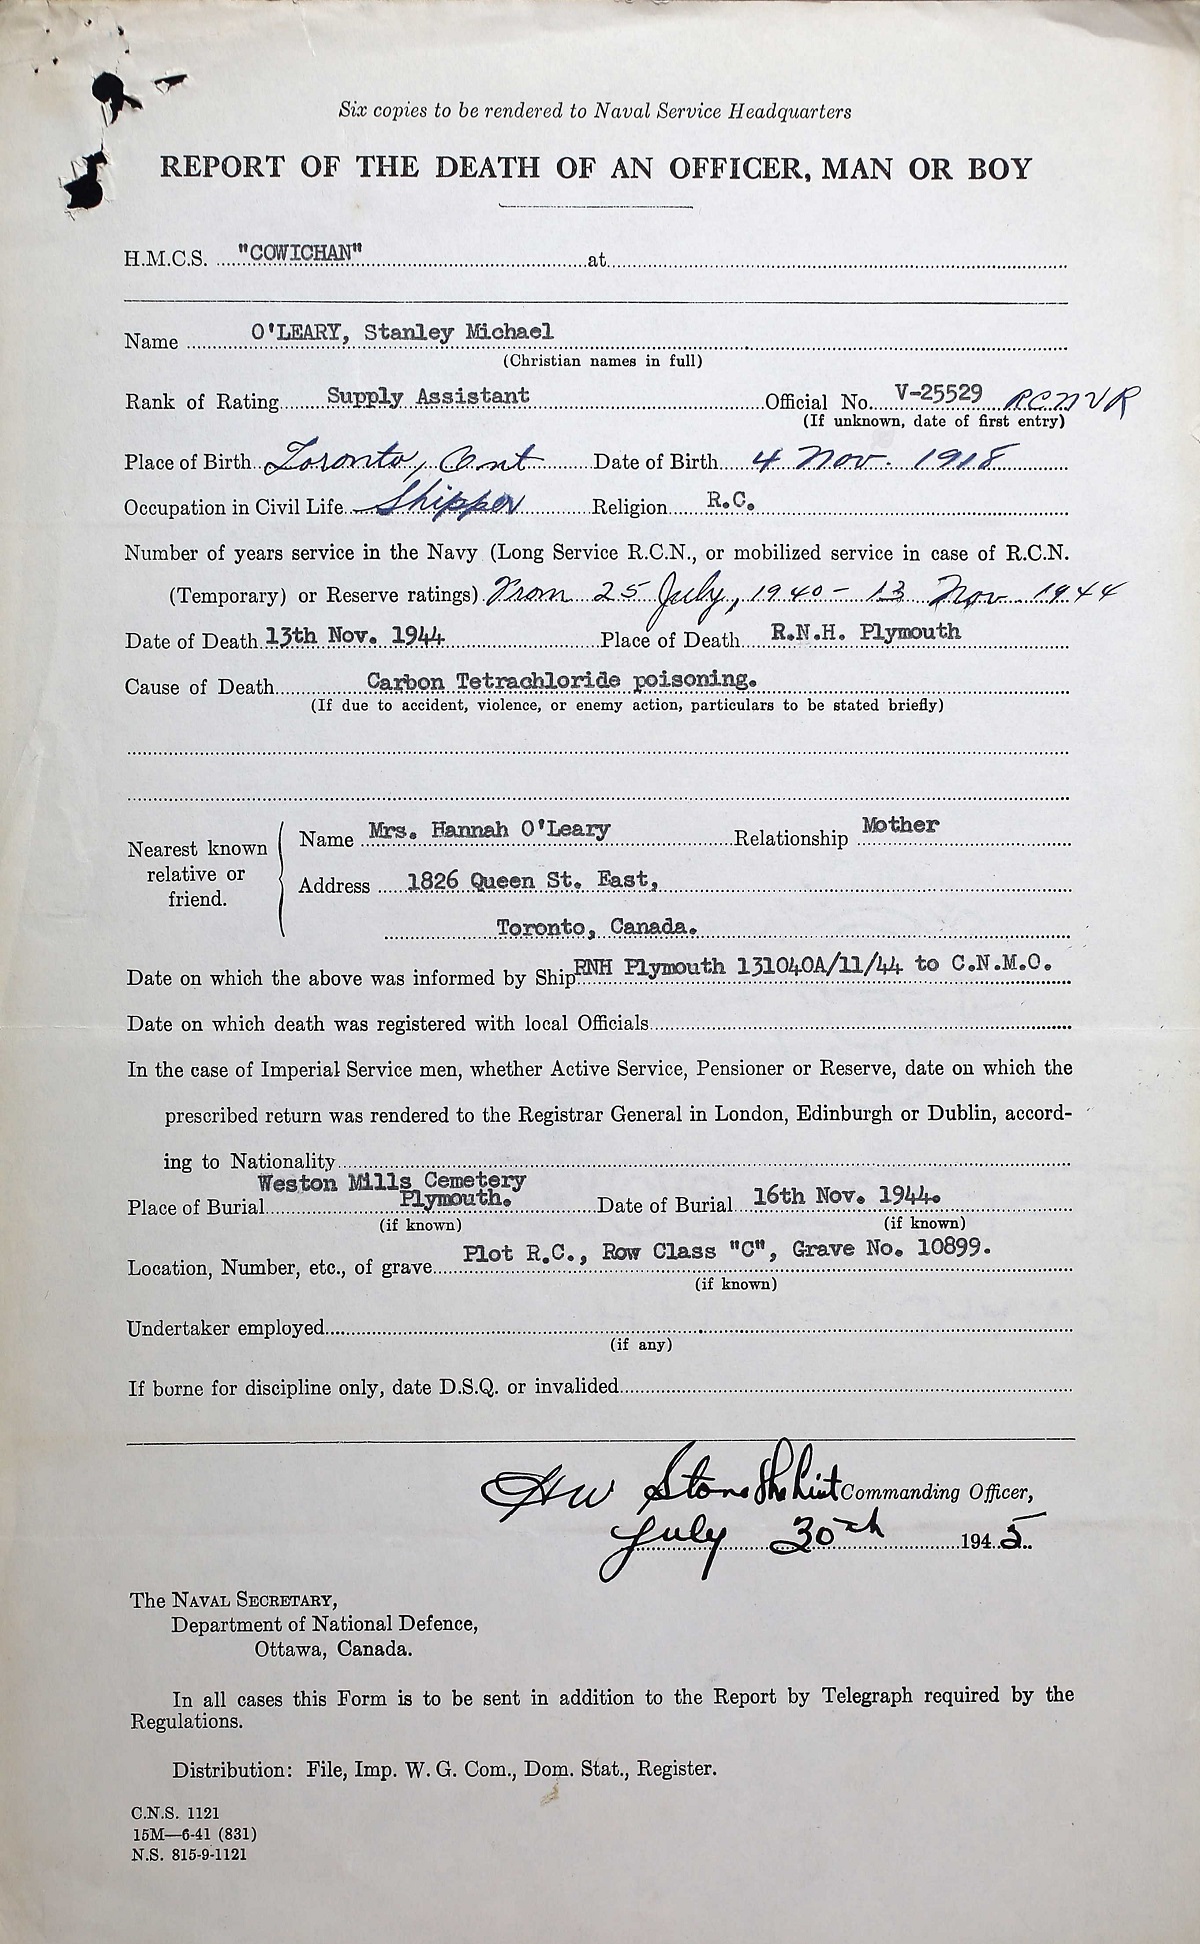 Six copies to be rendered to Naval Service Headquarters
REPORT OF THE DEATH OF AN OFFICER, MAN OR BOY
H.M.C.S. "COWICHAN" at
Name O'LEARY, Stanley Michael
(Christian names in full)
Rank of Rating Supply Assistant Official No. V-25529 RCNVR
(If unknown, date of first entry)
Place of Birth Toronto, Ont Date of Birth 4 Nov. 1918
Occupation in Civil Life Shipper Religion R.C.
Number of years service in the Navy (Long Service R.C.N., or mobilized service in case of R.C.N.
(Temporary) or Reserve ratings) From 25 July, 1940 - 13 Nov 1944
Date of Death 13th Nov. 1944 Place of Death R.N.H. Plymouth
Cause of Death Carbon Tetrachloride poisoning.
(If due to accident, violence, or enemy action, particulars to be stated briefly)
Nearest known relative or friend.
Name Mrs. Hannah O'Leary Relationship Mother
Address 1826 Queen St. East,
Toronto, Canada.
Date on which the above was informed by Ship RNH Plymouth 131040A/11/44 to C.N.M.O.
Date on which death was registered with local Officials
In the case of Imperial Service men, whether Active Service, Pensioner or Reserve, date on which the
prescribed return was rendered to the Registrar General in London, Edinburgh or Dublin, accord-
ing to Nationality
Weston Mills Cemetery
Place of Burial Plymouth. Date of Burial 16th Nov. 1944.
(if known) (if known)
Location, Number, etc., of grave Plot R.C., Row Class "C", Grave No. 10899.
(if known)
Undertaker employed
(if any)
If borne for discipline only, date D.S.Q. or invalided
HW Stone Commanding Officer,
July 30th 1945
The NAVAL SECRETARY,
Department of National Defence,
Ottawa, Canada.
In all cases this Form is to be sent in addition to the Report by Telegraph required by the
Regulations.
Distribution: File, Imp. W. G. Com., Dom. Stat., Register.
C.N.S. 1121
15M—6-41 (831)
N.S. 815-9-1121